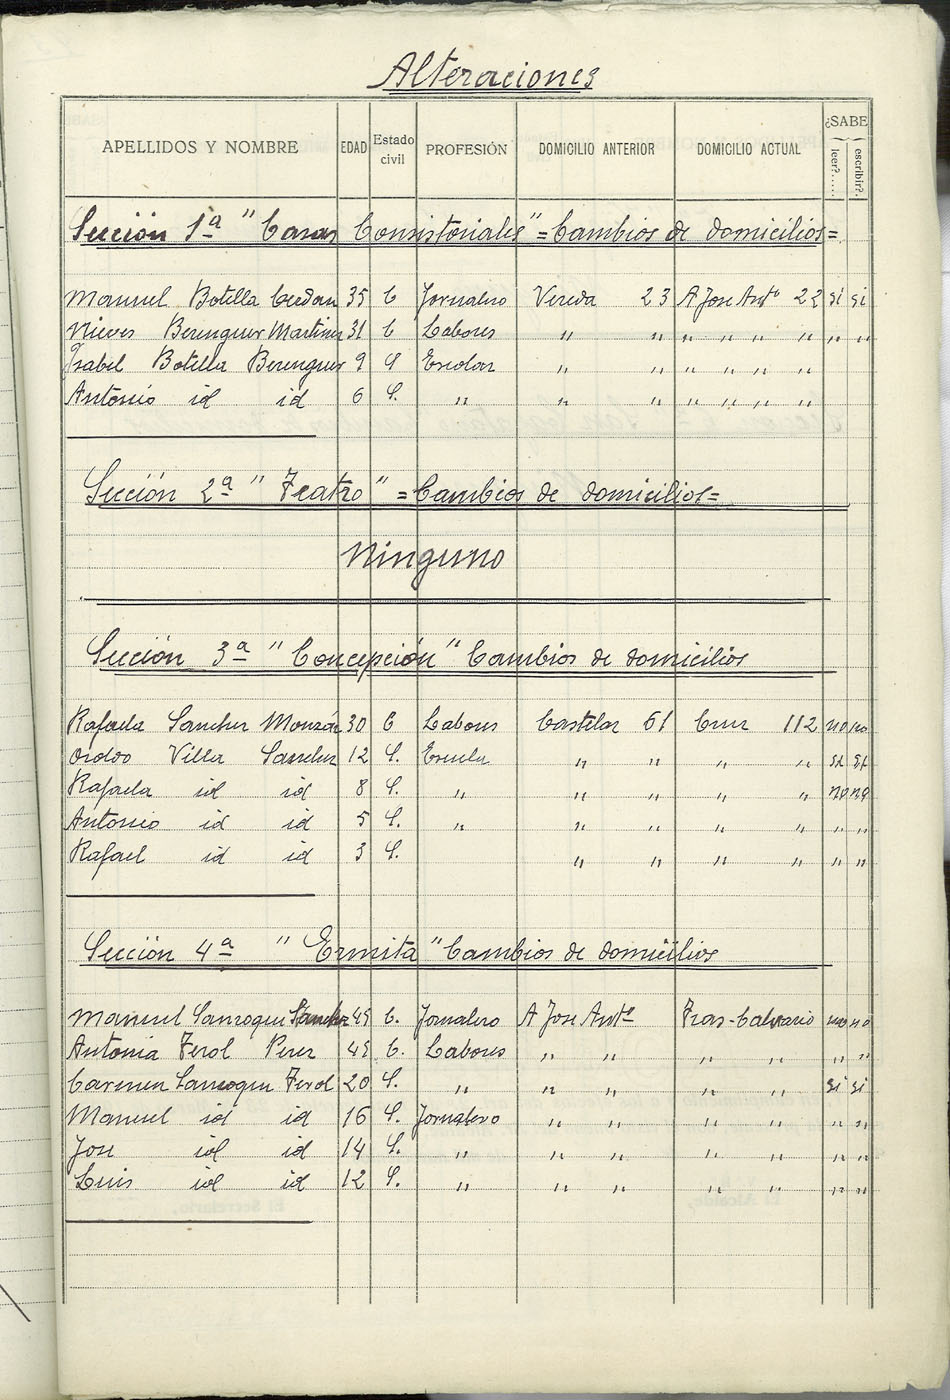 Alteraciones
APELLIDOS Y NOMBRE EDAD Estado civil PROFESIÓN DOMICILIO ANTERIOR DOMICILIO ACTUAL ¿SABE leer?..... escribir?.
Sección 1ª " Casas Consistoriales" = Cambios de domicilios =
Manuel Botella Cerdan 35 C Jornalero Vereda 23 A Jose Antº 22 si si
Nieves Berenguer Martinez 31 C Labores " " " " " " " "
Isabel Botella Berenguer 9 S Escolar " " " " " "
Antonio id id 6 S. " " " " " " "
Sección 2ª " Teatro " = Cambios de domicilios =
Ninguno
Sección 3ª " Concepción " Cambios de domicilios
Rafaela Sanchez Monzón 30 C Labores Castelar 61 Cruz 112 no no
Villa Sanchez 12 S. Escuela " " " " si si
Rafaela id id 8 S. " " " " " no no
Antonio id id 5 S. " " " " " " "
Rafael id id 3 S. " " " " " "
Sección 4ª " Ermita " Cambios de domicilios
Manuel Sanroque Sanchez 49 C. Jornalero A Jose Antº Tras-Calvario no no
Antonia Ferol Perez 49 C. Labores " " " " " "
Carmen Sanroque Ferol 20 S. " " " " " si si
Manuel id id 16 S. Jornalero " " " " " "
Jose id id 14 S. " " " " " " "
Luis id id 12 S. " " " " " " "